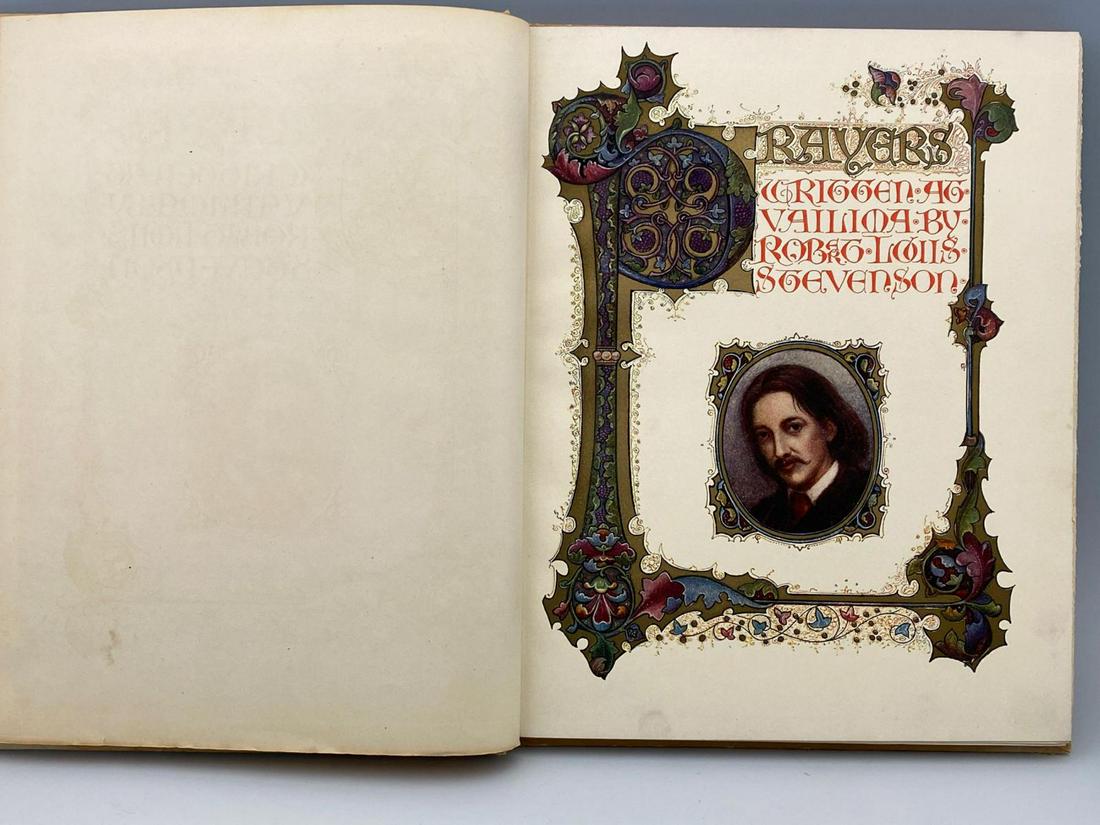 PRAYERS
WRITTEN · AT ·
VAILIMA · BY ·
ROBERT · LOUIS ·
STEVENSON ·